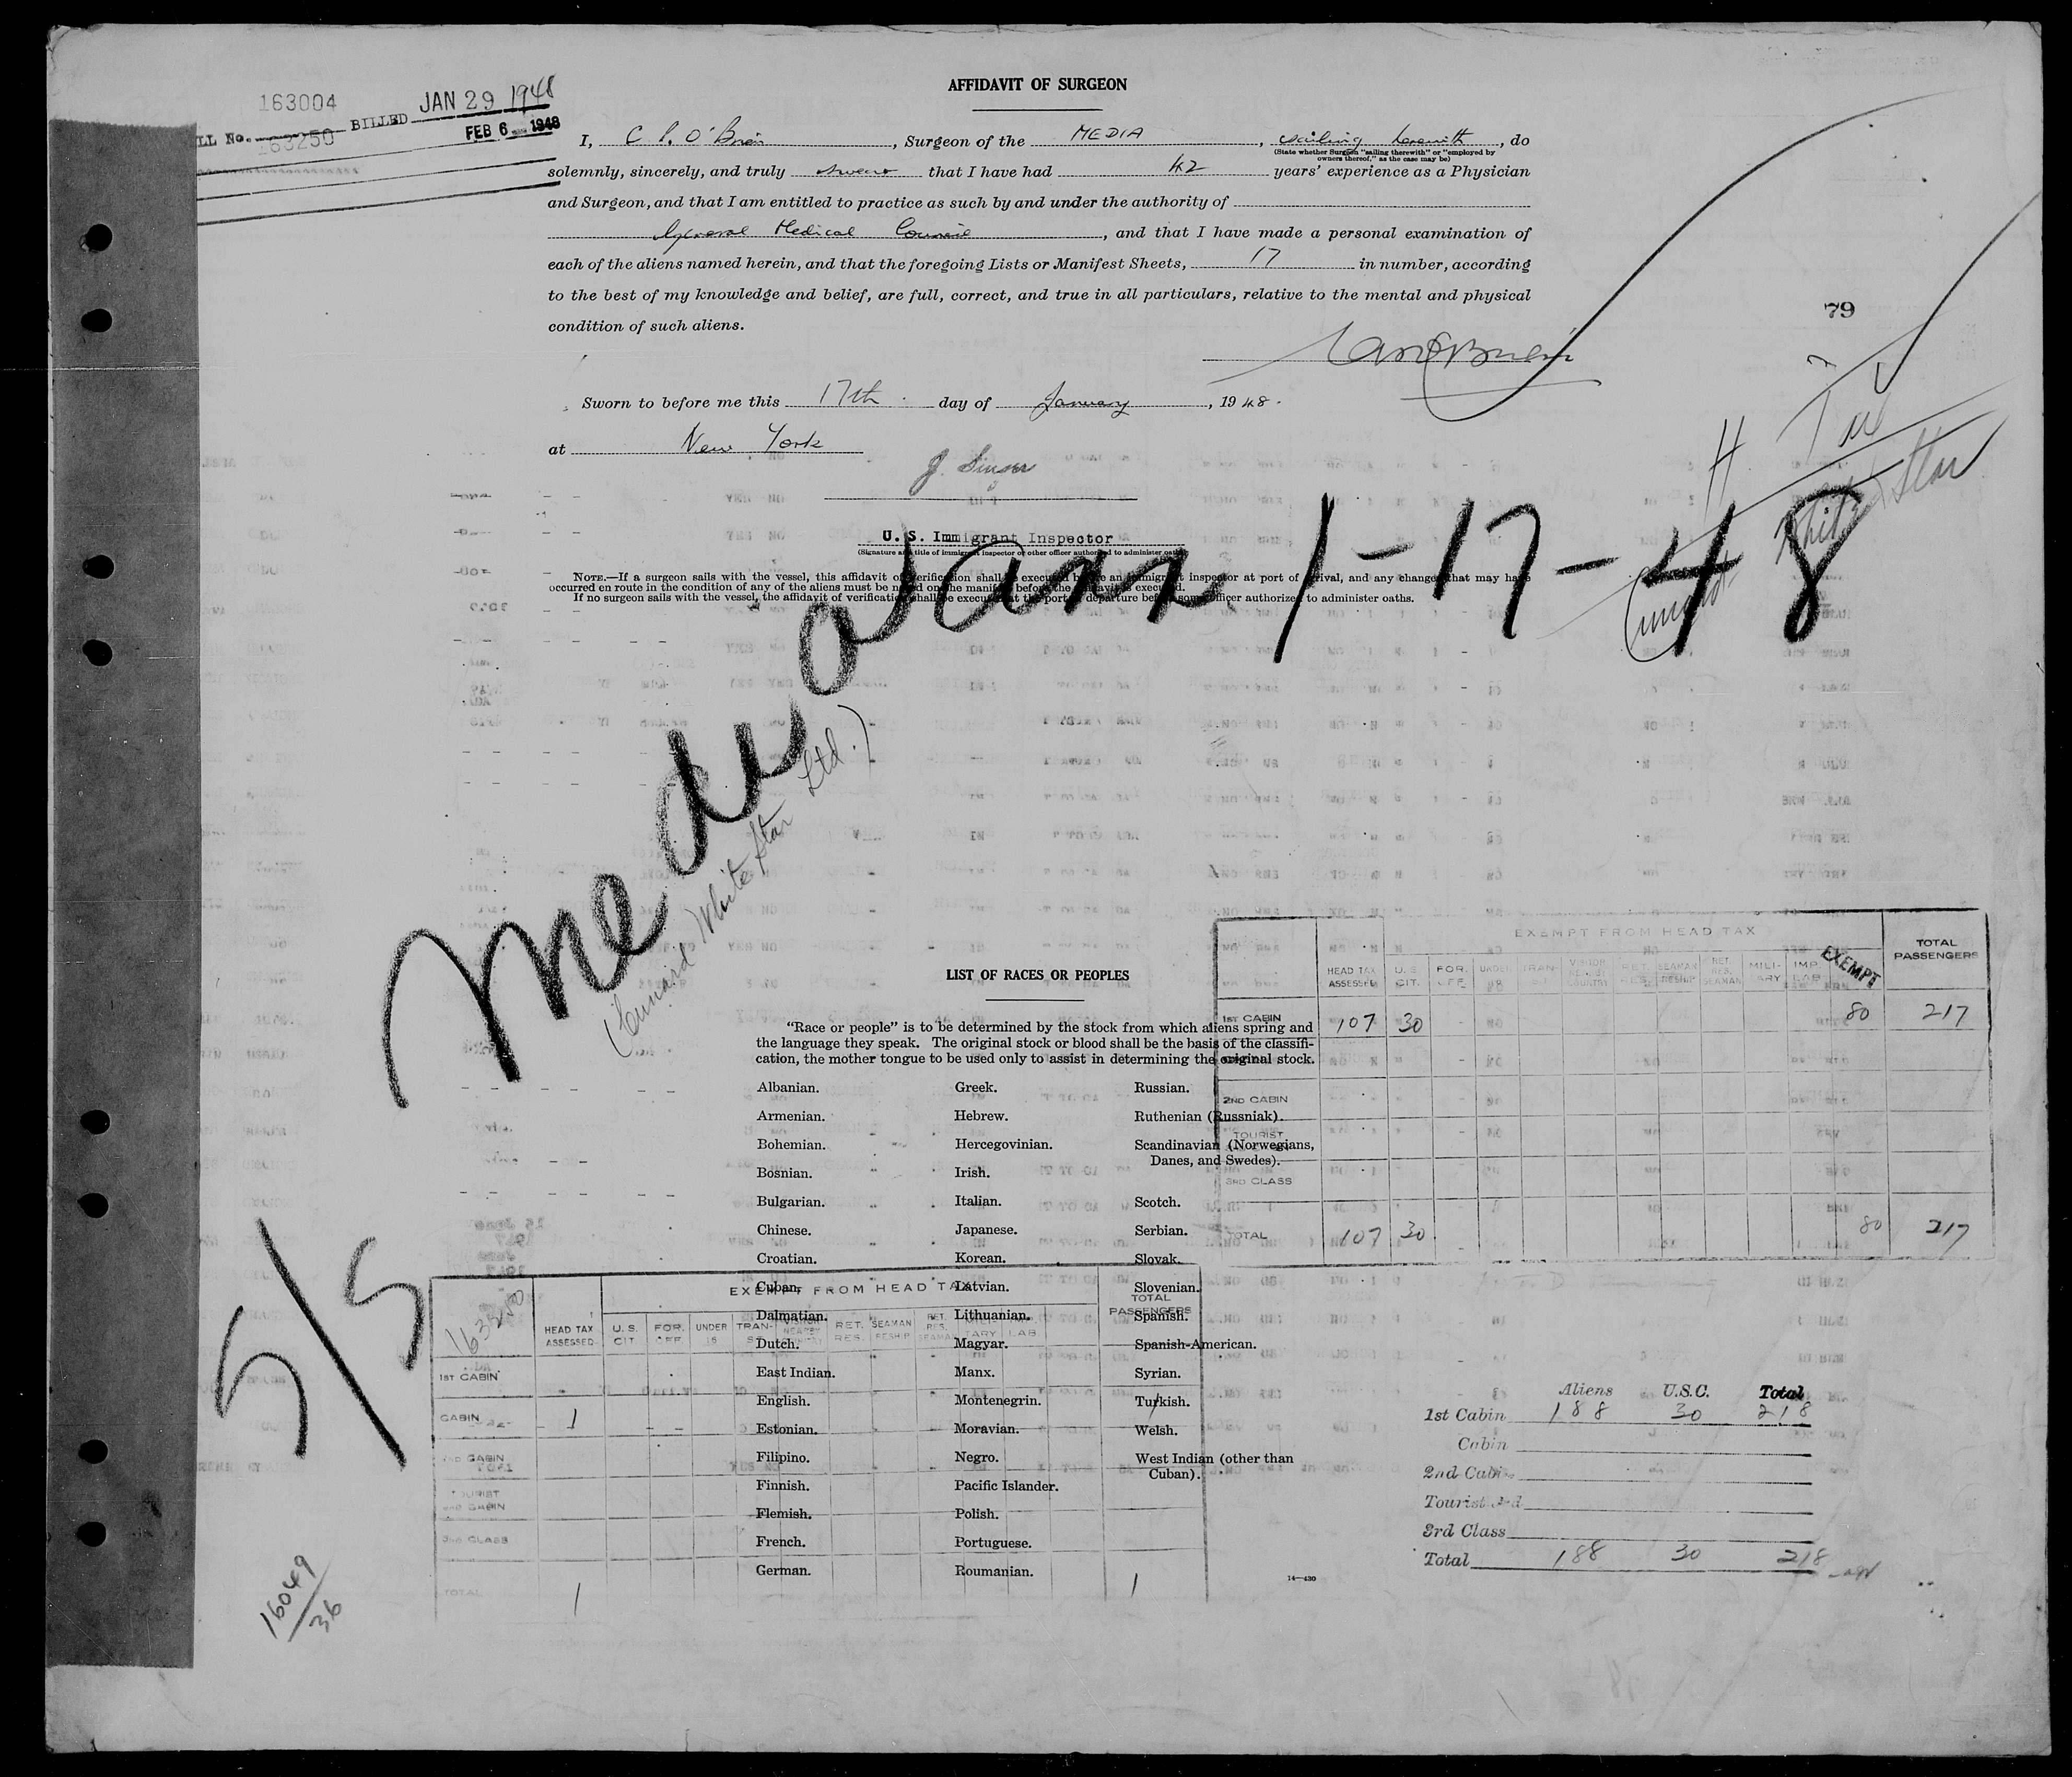 AFFIDAVIT OF SURGEON
163004
LL No. 163250 BILLED JAN 29 1948
FEB 6 1948
I, C P. O'Brien, Surgeon of the MEDIA, sailing therewith, do
(State whether Surgeon "sailing therewith" or "employed by
owners thereof," as the case may be)
solemnly, sincerely, and truly swear that I have had 42 years' experience as a Physician
and Surgeon, and that I am entitled to practice as such by and under the authority of
General Medical Council, and that I have made a personal examination of
each of the aliens named herein, and that the foregoing Lists or Manifest Sheets, 17 in number, according
to the best of my knowledge and belief, are full, correct, and true in all particulars, relative to the mental and physical
condition of such aliens.
79
Sworn to before me this 17th day of January, 1948.
at New York
J. Singer
H Tax
Cunard White Star
U. S. Immigrant Inspector
(Signature and title of immigrant inspector or other officer authorized to administer oaths)
NOTE.—If a surgeon sails with the vessel, this affidavit of verification shall be executed before an immigrant inspector at port of arrival, and any changes that may have
occurred en route in the condition of any of the aliens must be noted on the manifest before the affidavit is executed.
If no surgeon sails with the vessel, the affidavit of verification shall be executed at the port of departure before some officer authorized to administer oaths.
Media 1-17-48
(Cunard White Star Ltd.)
LIST OF RACES OR PEOPLES
"Race or people" is to be determined by the stock from which aliens spring and
the language they speak. The original stock or blood shall be the basis of the classifi-
cation, the mother tongue to be used only to assist in determining the original stock.
Albanian.
Armenian.
Bohemian.
Bosnian.
Bulgarian.
Chinese.
Croatian.
Cuban.
Dalmatian.
Dutch.
East Indian.
English.
Estonian.
Filipino.
Finnish.
Flemish.
French.
German.
Greek.
Hebrew.
Hercegovinian.
Irish.
Italian.
Japanese.
Korean.
Latvian.
Lithuanian.
Magyar.
Manx.
Montenegrin.
Moravian.
Negro.
Pacific Islander.
Polish.
Portuguese.
Roumanian.
Russian.
Ruthenian (Russniak).
Scandinavian (Norwegians,
Danes, and Swedes).
Scotch.
Serbian.
Slovak.
Slovenian.
Spanish.
Spanish-American.
Syrian.
Turkish.
Welsh.
West Indian (other than
Cuban).
14—430
EXEMPT FROM HEAD TAX
HEAD TAX ASSESSED U.S. CIT. FOR. OFF. UNDER TRAN- VISITOR NEARBY COUNTRY RET. RES. SEAMAN RESHIP RET. RES. SEAMAN MILI- ARY IMP. LAB. EXEMPT TOTAL PASSENGERS
1ST CABIN 107 30 80 217
2ND CABIN
TOURIST
3RD CLASS
TOTAL 107 30 80 217
5/5
163250
EXEMPT FROM HEAD TAX
HEAD TAX ASSESSED U.S. CIT. FOR. OFF. UNDER 16 TRAN- RET. RES. SEAMAN RESHIP RET. RES. SEAMAN TARY LAB TOTAL PASSENGERS
1ST CABIN
CABIN 1
2ND CABIN
TOURIST
2ND CABIN
3RD CLASS
TOTAL 1 1
16049
36
Aliens U.S.C. Total
1st Cabin 188 30 218
Cabin
2nd Cabin
Tourist 3rd
3rd Class
Total 188 30 218